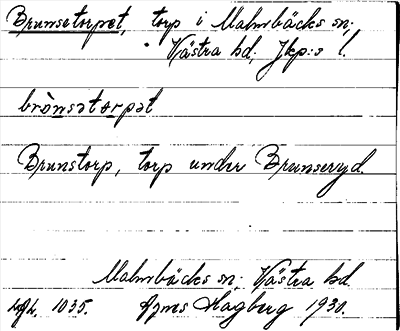 Brunsetorpet, torp i Malmbäcks sn;
Västra hd; Jkp:s l.
brònsətorpət
Brunstorp, torp under Brunseryd.
Malmbäcks sn; Västra hd.
1035. Hagberg 1930.